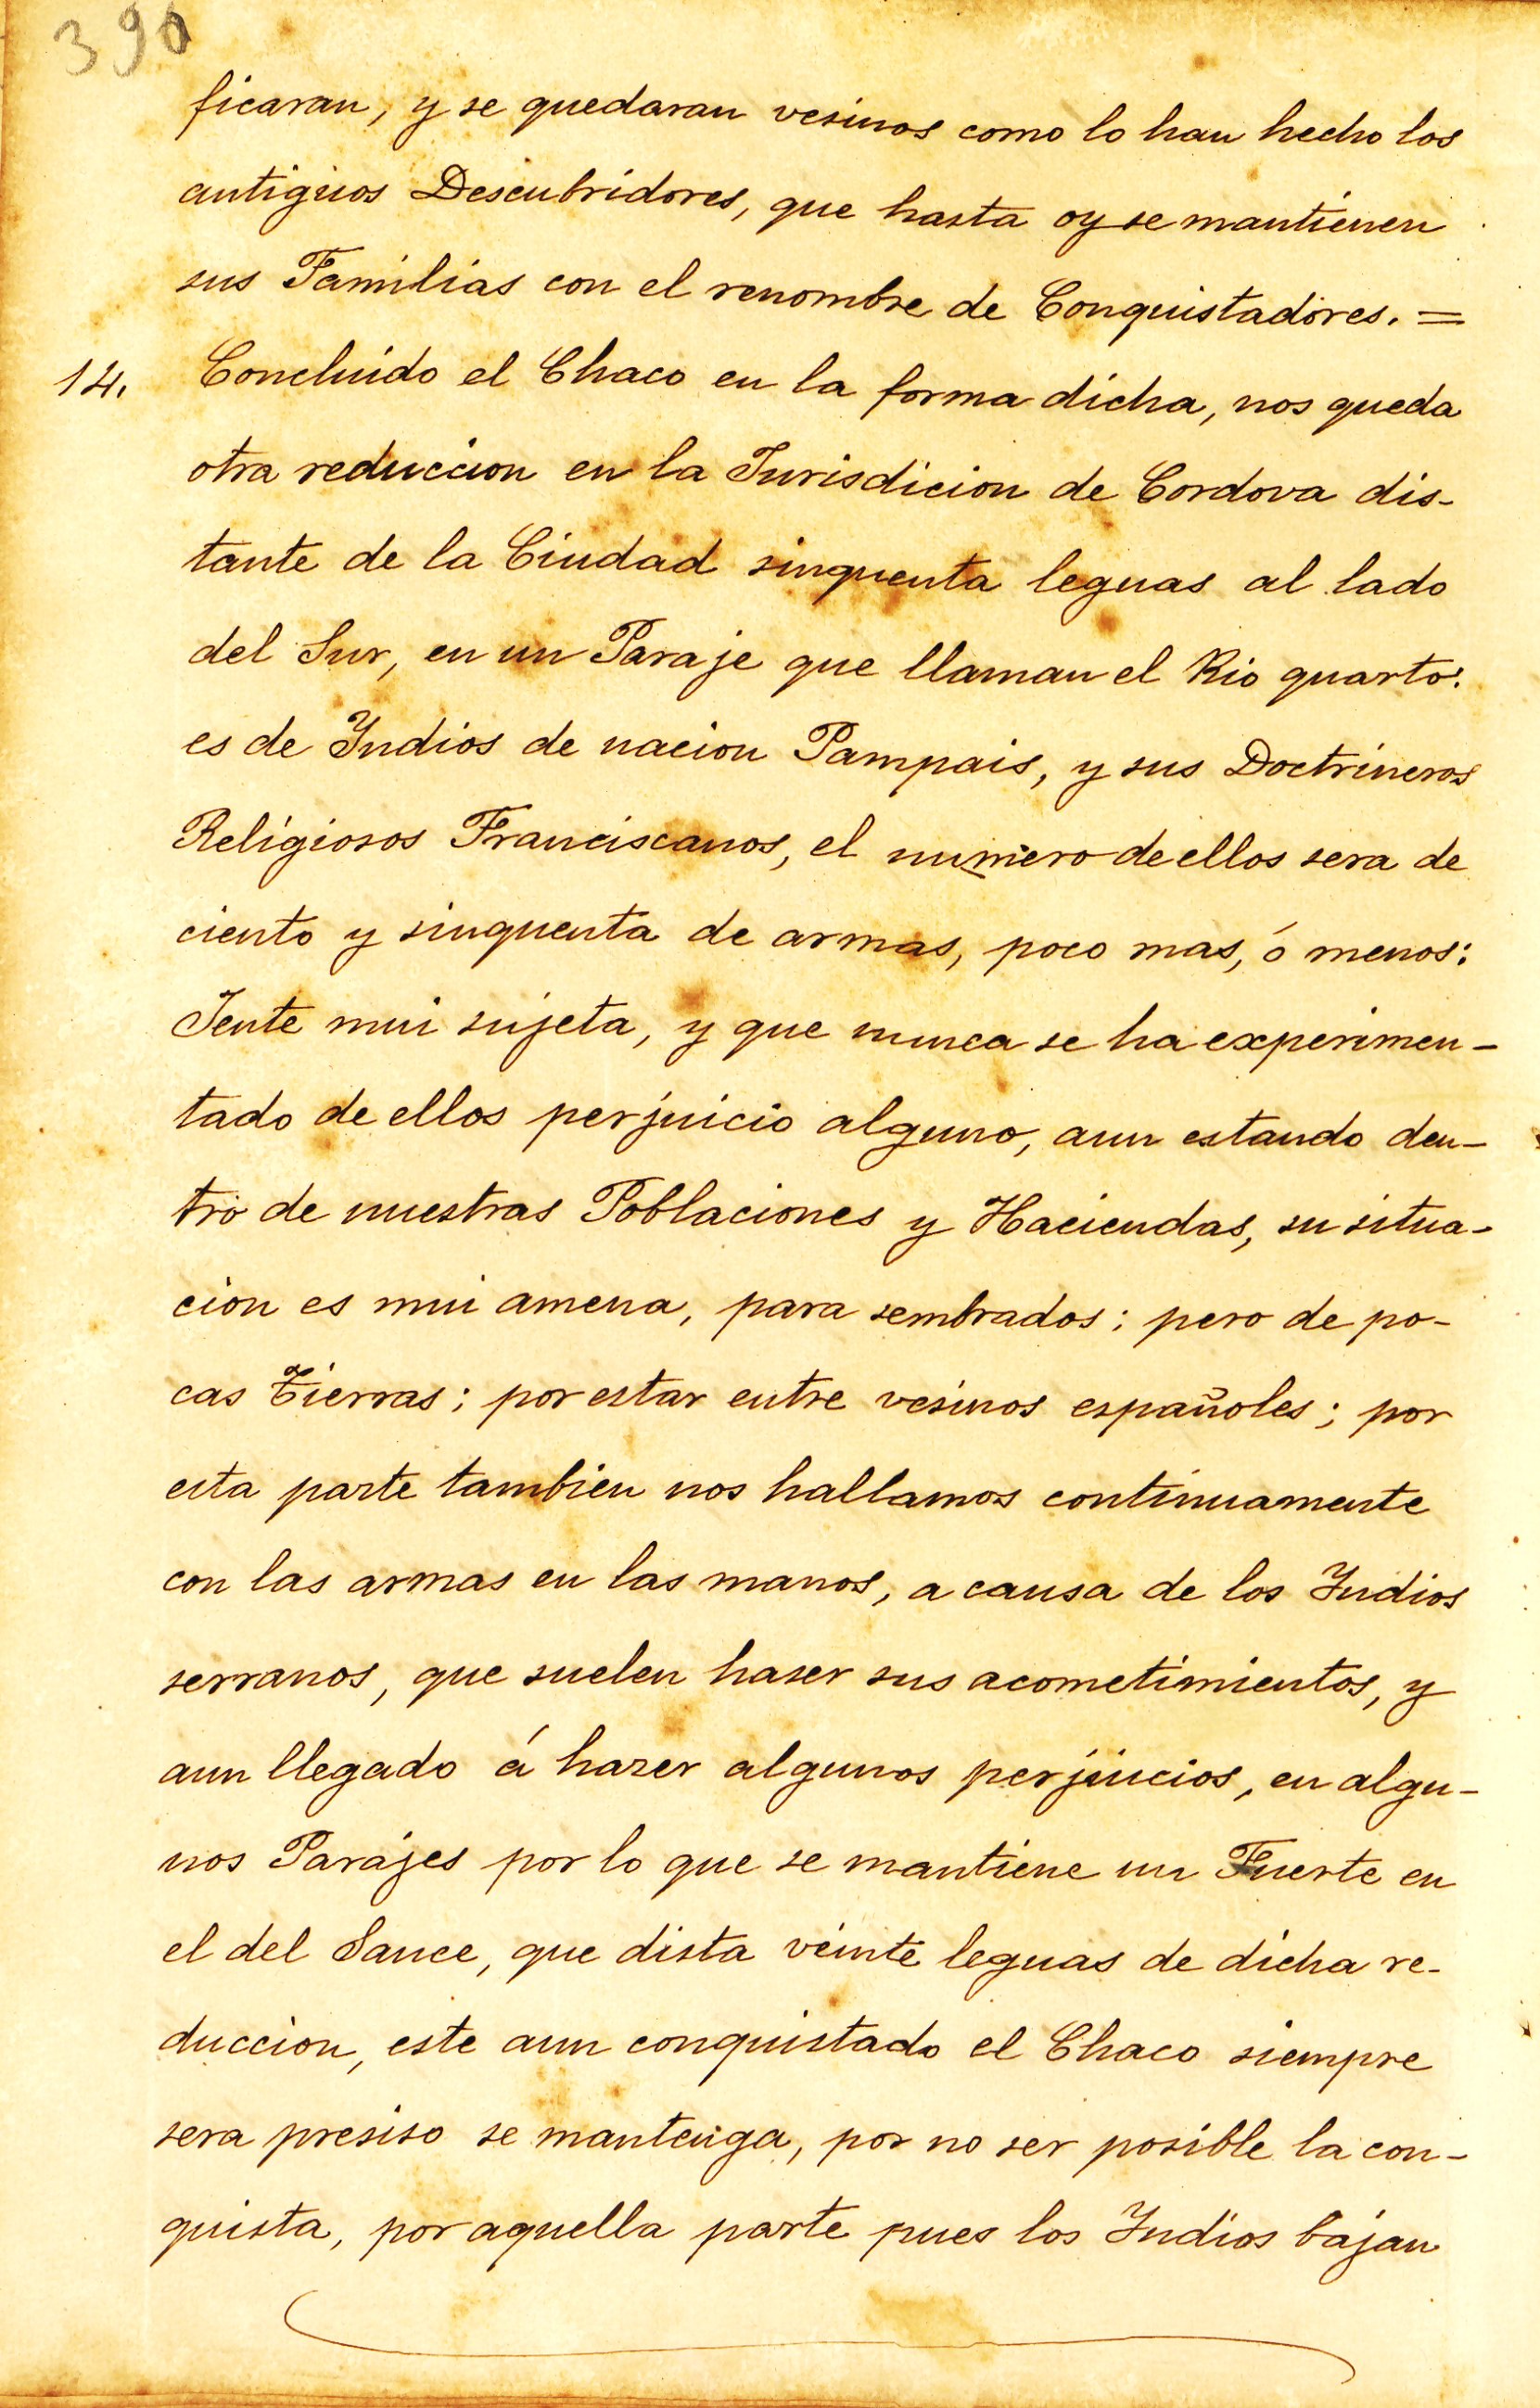 390
ficaran, y se quedaran vesinos como lo han hecho los
antiguos Descubridores, que hasta oy se mantienen
sus Familias con el renombre de Conquistadores. =
14. Concluido el Chaco en la forma dicha, nos queda
otra reduccion en la Jurisdicion de Cordova dis-
tante de la Ciudad sinquenta leguas al lado
del Sur, en un Paraje que llaman el Rio quarto:
es de Yndios de nacion Pampais, y sus Doctrineros
Religiosos Franciscanos, el numero de ellos sera de
ciento y sinquenta de armas, poco mas, ó menos:
Jente mui sujeta, y que nunca se ha experimen-
tado de ellos perjuicio alguno, aun estando den-
tro de nuestras Poblaciones y Haciendas, su situa-
cion es mui amena, para sembrados; pero de po-
cas Tierras; por estar entre vesinos españoles; por
esta parte tambien nos hallamos continuamente
con las armas en las manos, a causa de los Yndios
serranos, que suelen haser sus acometimientos, y
aun llegado á hazer algunos perjuicios, en algu-
nos Parajes por lo que se mantiene un Fuerte en
el del Sauce, que dista veinte leguas de dicha re-
duccion, este aun conquistado el Chaco siempre
sera presiso se mantenga, por no ser posible la con-
quista, por aquella parte pues los Yndios bajan